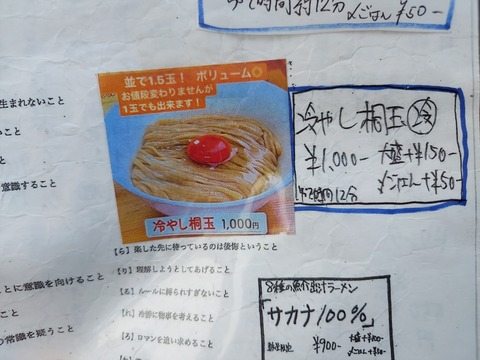 約12分 〆ごはん¥50-
並で1.5玉! ボリューム◎
お値段変わりませんが
1玉でも出来ます!
冷やし桐玉 1,000円
冷やし桐玉 冷
¥1,000-
大盛+¥150-
〆ごはん+¥50-
12分
生まれないこと
いこと
こと
意識すること
こと
ことに意識を向けること
こと
の常識を疑うこと
【ら】楽した先に待っているのは後悔ということ
【り】理解しようとしてあげること
【る】ルールに縛られすぎないこと
【れ】冷静に物事を考えること
【ろ】ロマンを追い求めること
8種の魚介出汁ラーメン
「サカナ100%」
¥900-